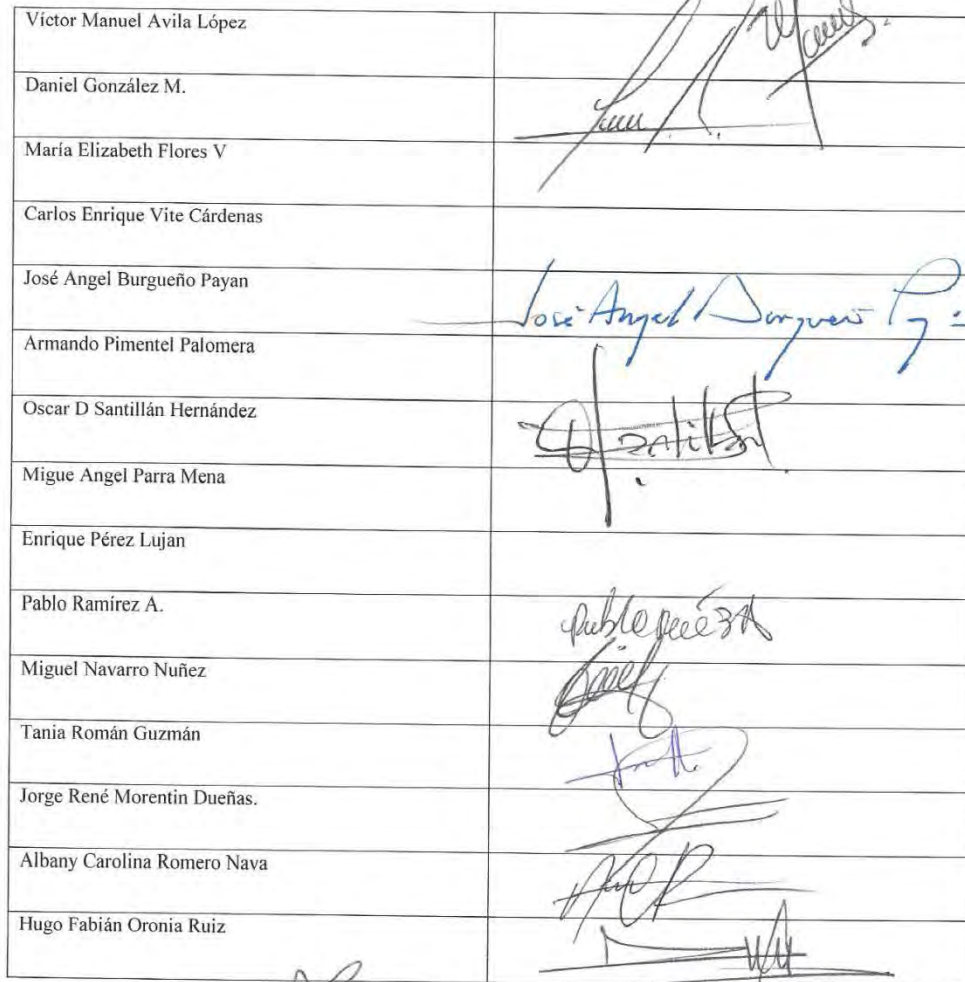 Víctor Manuel Avila López
Daniel González M.
María Elizabeth Flores V
Carlos Enrique Vite Cárdenas
José Angel Burgueño Payan
José Angel Burgueño
Armando Pimentel Palomera
Oscar D Santillán Hernández
Migue Angel Parra Mena
Enrique Pérez Lujan
Pablo Ramírez A.
Miguel Navarro Nuñez
Tania Román Guzmán
Jorge René Morentin Dueñas.
Albany Carolina Romero Nava
Hugo Fabián Oronia Ruiz